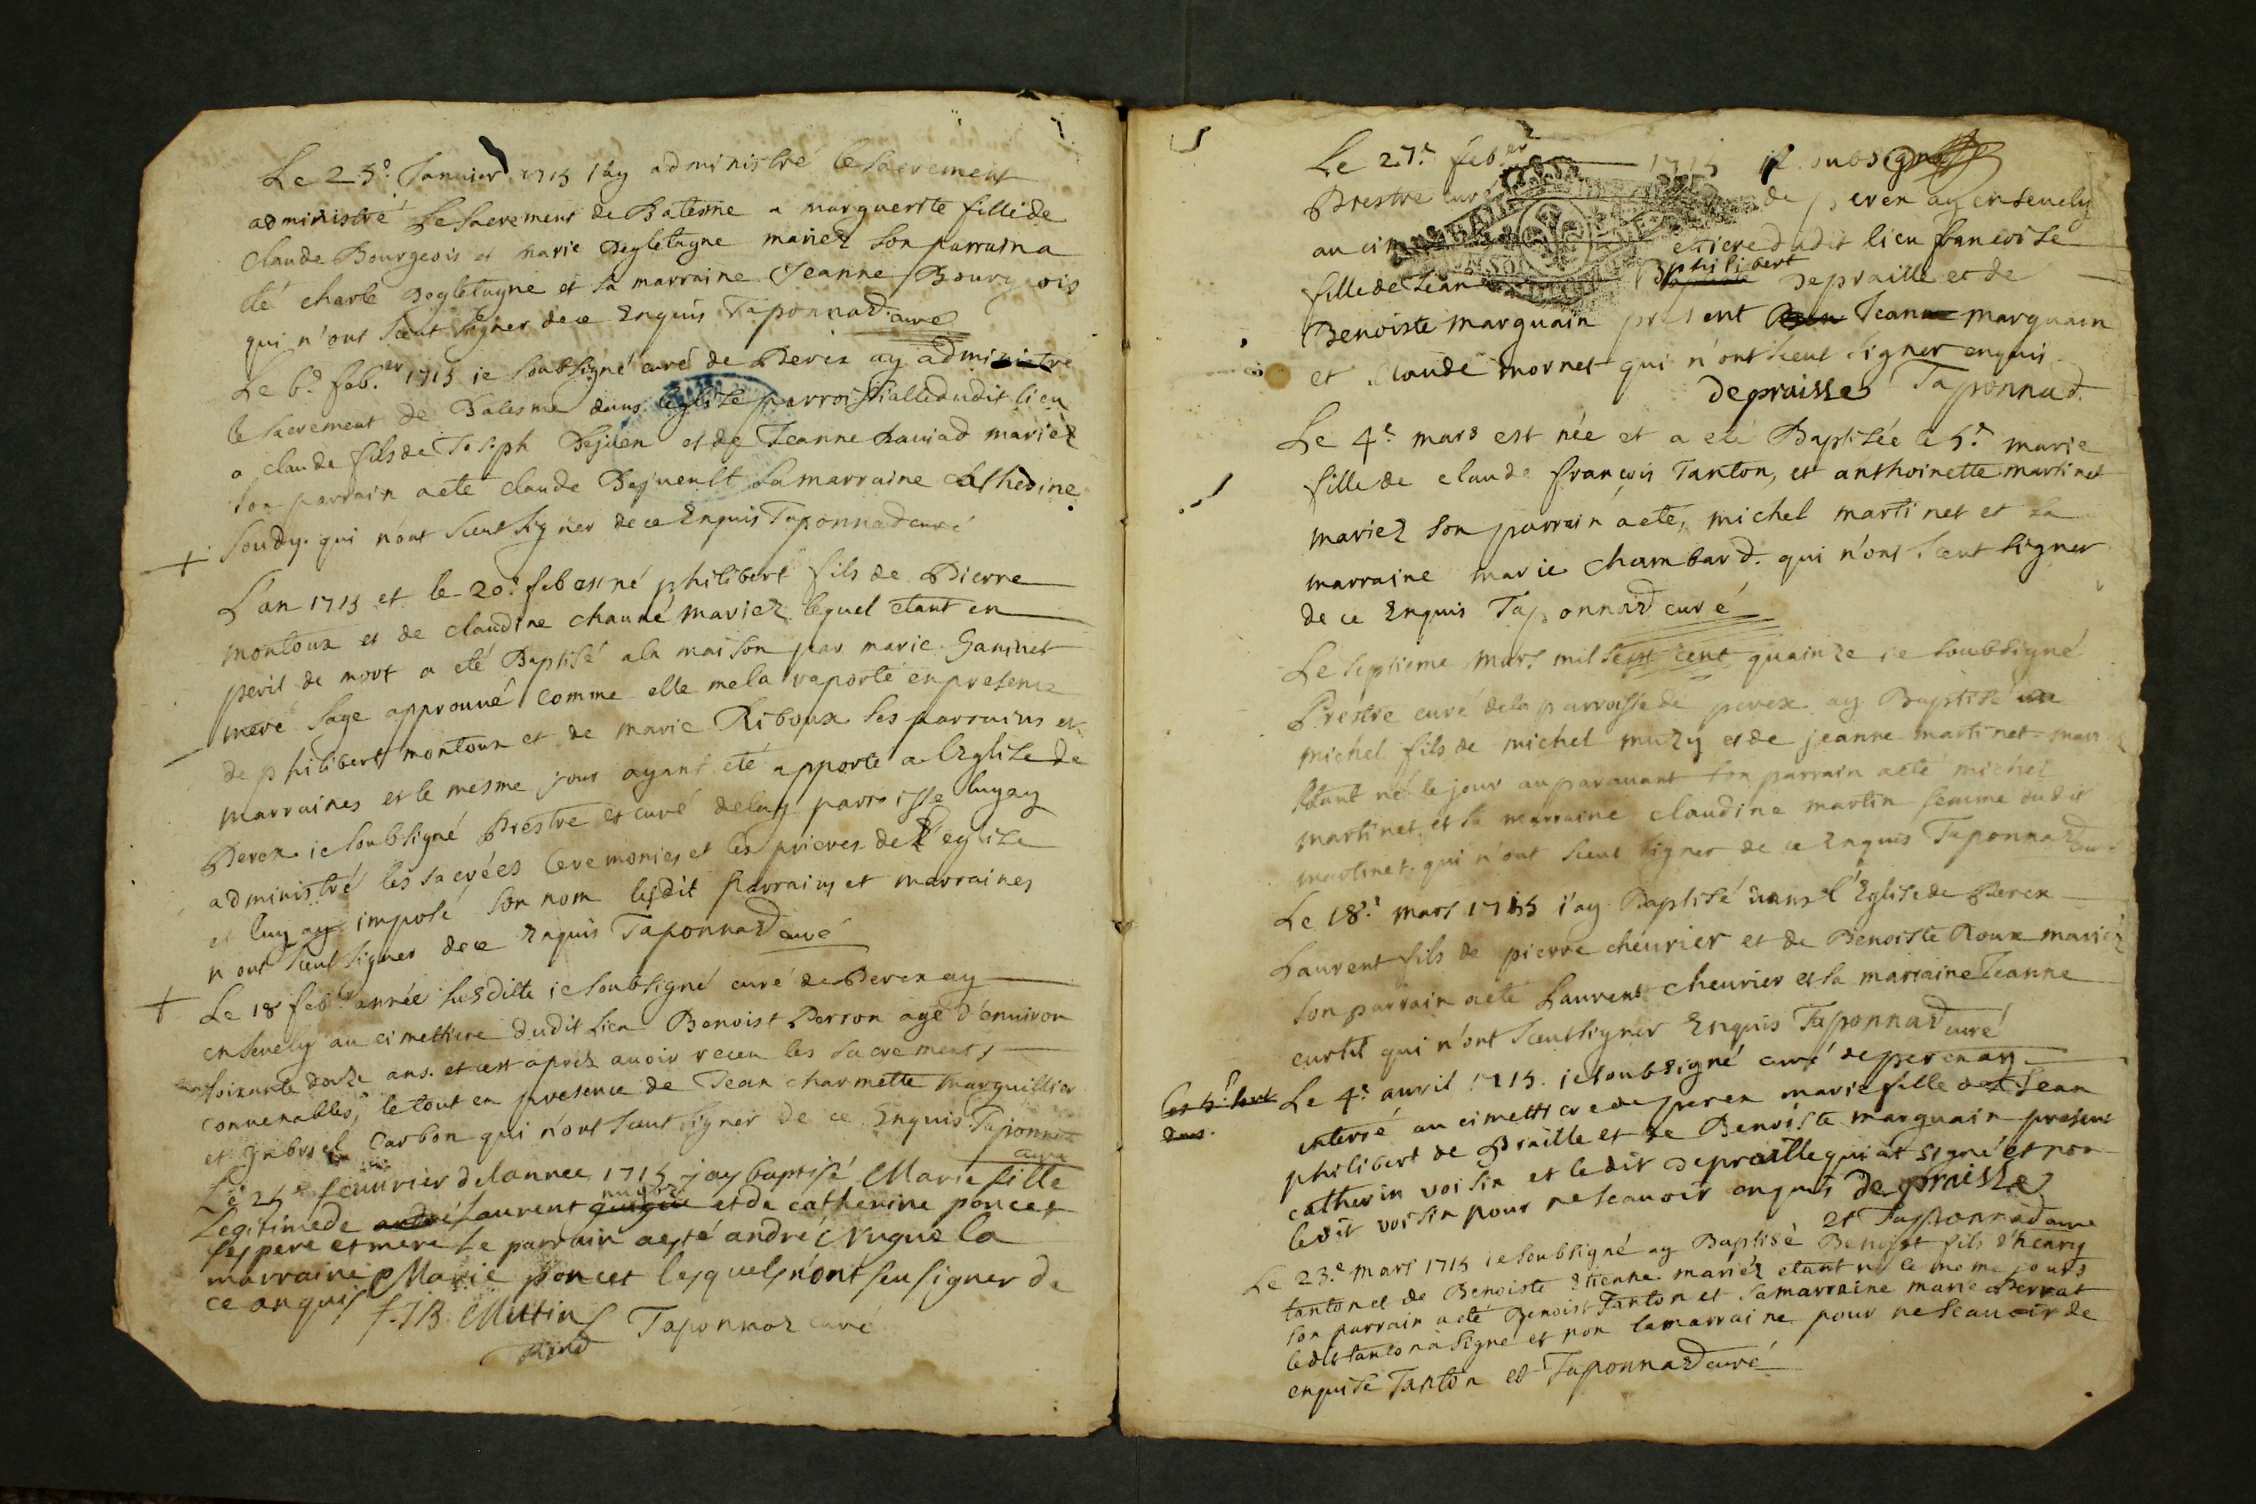 Le 25e Januier 1715 j'ay administré le sacrement
administré Le sacrement de Batesme a marguerite fille de
Claude Bourgeois et marie Degletagne mariez son parrain a
été charle Degletagne et sa marraine Jeanne Bourgeois
qui n'ont sceut signer de ce Enquis Taponnard curé
Le 6e feb.er 1715 ie soubsigné curé de Perex ay administre
le sacrement de Batesme dans leglise parroissialle dudit lieu
a claude fils de Joseph et de Jeanne mariez
son parrain a eté claude la marraine Catherine
Soudy qui n'ont sceut signer de ce Enquis Taponnard curé
L'an 1715 et le 20e feb est né philibert fils de Pierre
montoux et de claudine chauné mariez lequel etant en
peril de mort a eté Baptisé a la maison par marie Ganinet
mere sage approuvé comme elle me la raporté en presence
de philibert montoux et de marie Riboux ses parrains et
marraines et le mesme jour ayant eté apporté a l'Eglise de
Perex ie soubsigné Prestre et curé de lad parroisse luy ay
administré les sacrées Ceremonies et les prieres de l'eglise
et luy ay imposé son nom lesdit parrains et marraines
n'ont sceut signer de ce Enquis Taponnard curé
Le 18 feb.er année susditte ie soubsigné curé de Perex ay
enseuely au cimettiere dudit lieu Benoist Perron agé d'enuiron
soixante douze ans et cest apres auoir receu les sacrements
conuenables, le tout en presence de Jean charmette marguillier
et Gabriel Carbon qui n'ont sceut signer de ce Enquis Taponnard
curé
Le 25e feuurier de lannee 1715 jay baptisé Marie fille
Legitime de andré laurent nugue et de catherine poncet
ses pere et mere le parrain a esté andré Nugue la
marraine Marie poncet lesquels n'ont seu signer de
ce anquis f. J B. Muttin Taponnar curé
Le 27e feb.er 1715 ie soubsigné
Prestre curé de perex ay enseuely
au cimettiere dudit lieu francoise
fille de Jean philibert Depraille et de
Benoiste marguain present Jean marguain
et claude mornet qui n'ont sceut signer enquis
depraisles Taponnard
Le 4e mars est née et a eté Baptisée le 5e marie
fille de claude françois Tanton, et anthoinette martinet
mariez son parrain a eté, michel martinet et sa
marraine marie chambard. qui n'ont sceut signer
de ce Enquis Taponnard curé
Le septieme mars mil sept cent quainze ie soubsigné
Prestre curé de la parroisse de perex ay Baptisé
michel fils de michel muzy et de jeanne martinet mariez
etant né le jour auparauant son parrain a eté michel
martinet, et sa marraine claudine martin femme dudit
martinet. qui n'ont sceut signer de ce Enquis Taponnard curé
Le 18e mars 1715 j'ay Baptisé dans l'Eglise de Perex
Laurent fils de pierre cheurier et de Benoiste Roux mariéz
son parrain a eté Laurent cheurier et sa marraine Jeanne
curtil qui n'ont sceut signer Enquis Taponnard curé
Le 4e auril 1715. ie soubsigné curé de perex ay
enterré au cimettiere de perex marie fille de Jean
philibert de Praille et de Benoiste marguain present
catherin voisin et ledit depraille qui at signé et non
ledit voisin pour ne scauoir anquis de praisle
et Taponnard curé
Le 23.e mars 1715 ie soubsigné ay Baptisé Benoist fils d'henry
tanton et de Benoiste Etienne mariéz etant né le meme jours
son parrain a eté Benoist Tanton et sa marraine marie Perrat
ledit tanton a signé et non la marraine pour ne scauoir de
enquise Tanton et Taponnard curé